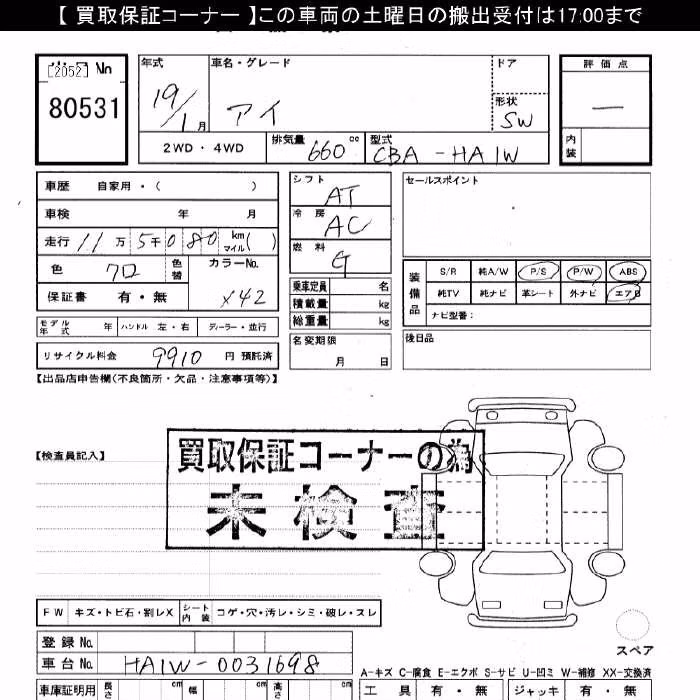 【 買取保証コーナー 】この車両の土曜日の搬出受付は17:00まで
[2052] No
80531
年式 車名・グレード ドア 評価点
19/1月 アイ 形状 SW —
2WD・4WD 排気量 660 cc 型式 CBA-HA1W 内装
車歴 自家用・( ) シフト AT セールスポイント
車検 年 月 冷房 AC
走行 11万5千080 km マイル( ) 燃料 G
色 クロ 色替 カラーNo. X42
保証書 有・無
乗車定員 名
積載量 kg
総重量 kg
装備品 S/R 純A/W P/S P/W ABS
純TV 純ナビ 革シート 外ナビ エアB
ナビ型番:
モデル年式 年 ハンドル 左・右 ディーラー・並行
名変期限 月 日
後日品
リサイクル料金 9910 円 預託済
【出品店申告欄(不良箇所・欠品・注意事項等)】
【検査員記入】
買取保証コーナーの為
未検査
FW キズ・トビ石・割レX シート内装 コゲ・穴・汚レ・シミ・破レ・スレ
スペア
登録No.
車台No. HA1W-0031698
A-キズ C-腐食 E-エクボ S-サビ U-凹ミ W-補修 XX-交換済
車庫証明用 長さ cm 幅 cm 高さ cm 工具 有・無 ジャッキ 有・無